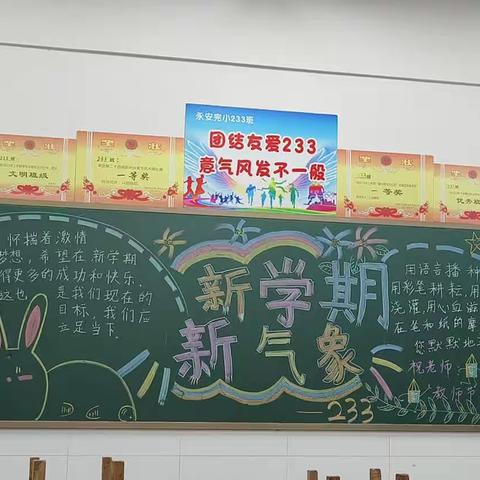 永安完小233班
团结友爱233
意气风发不一般
奖状
233班
文明班级
奖状
233班:
一等奖
奖状
一等奖
优秀班
怀揣着激情
梦想，希望在新学期
得更多的成功和快乐.
这也 是我们现在的
目标，我们应
立足当下.
新学期
新气象
—233
用语言播种
用彩笔耕耘,用
浇灌,用心血滋
在笔和纸的摩
您默默地
祝老师
教师节